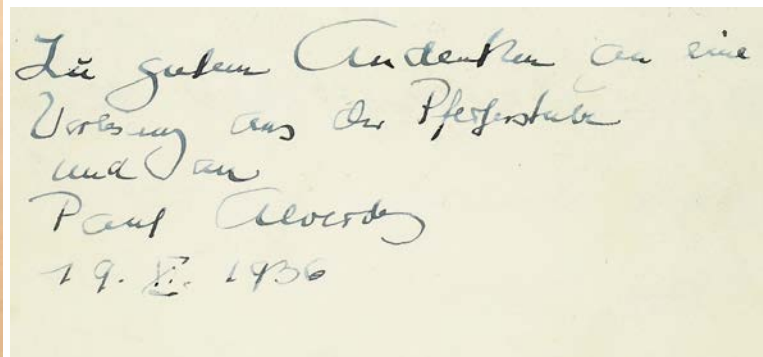 Zu gutem Andenken an eine
Vorlesung aus der Pfeiferstube
und an
Paul Alverdes
19. XI. 1936